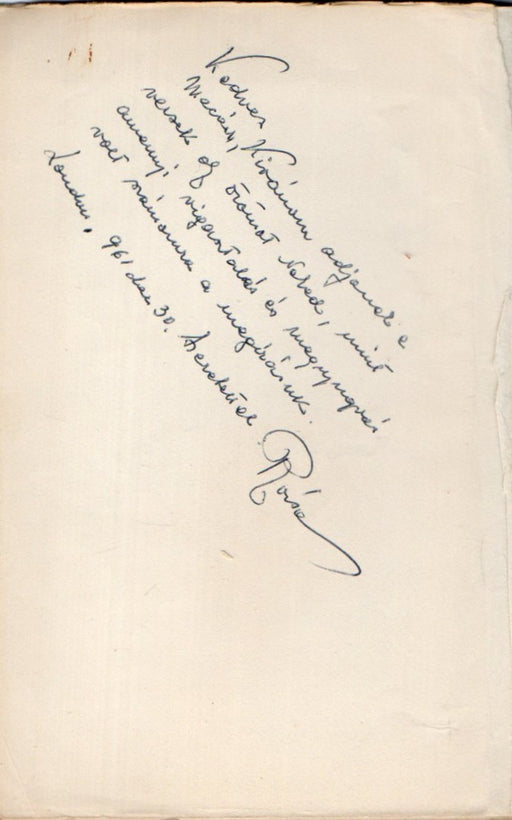 Kedves
Kívánom adjanak e
versek oly örömöt Neked, mint
amennyi vigasztalás és megnyugvás
volt számomra a megírásuk.
London, 961 dec 30. Szeretettel
Rózsa